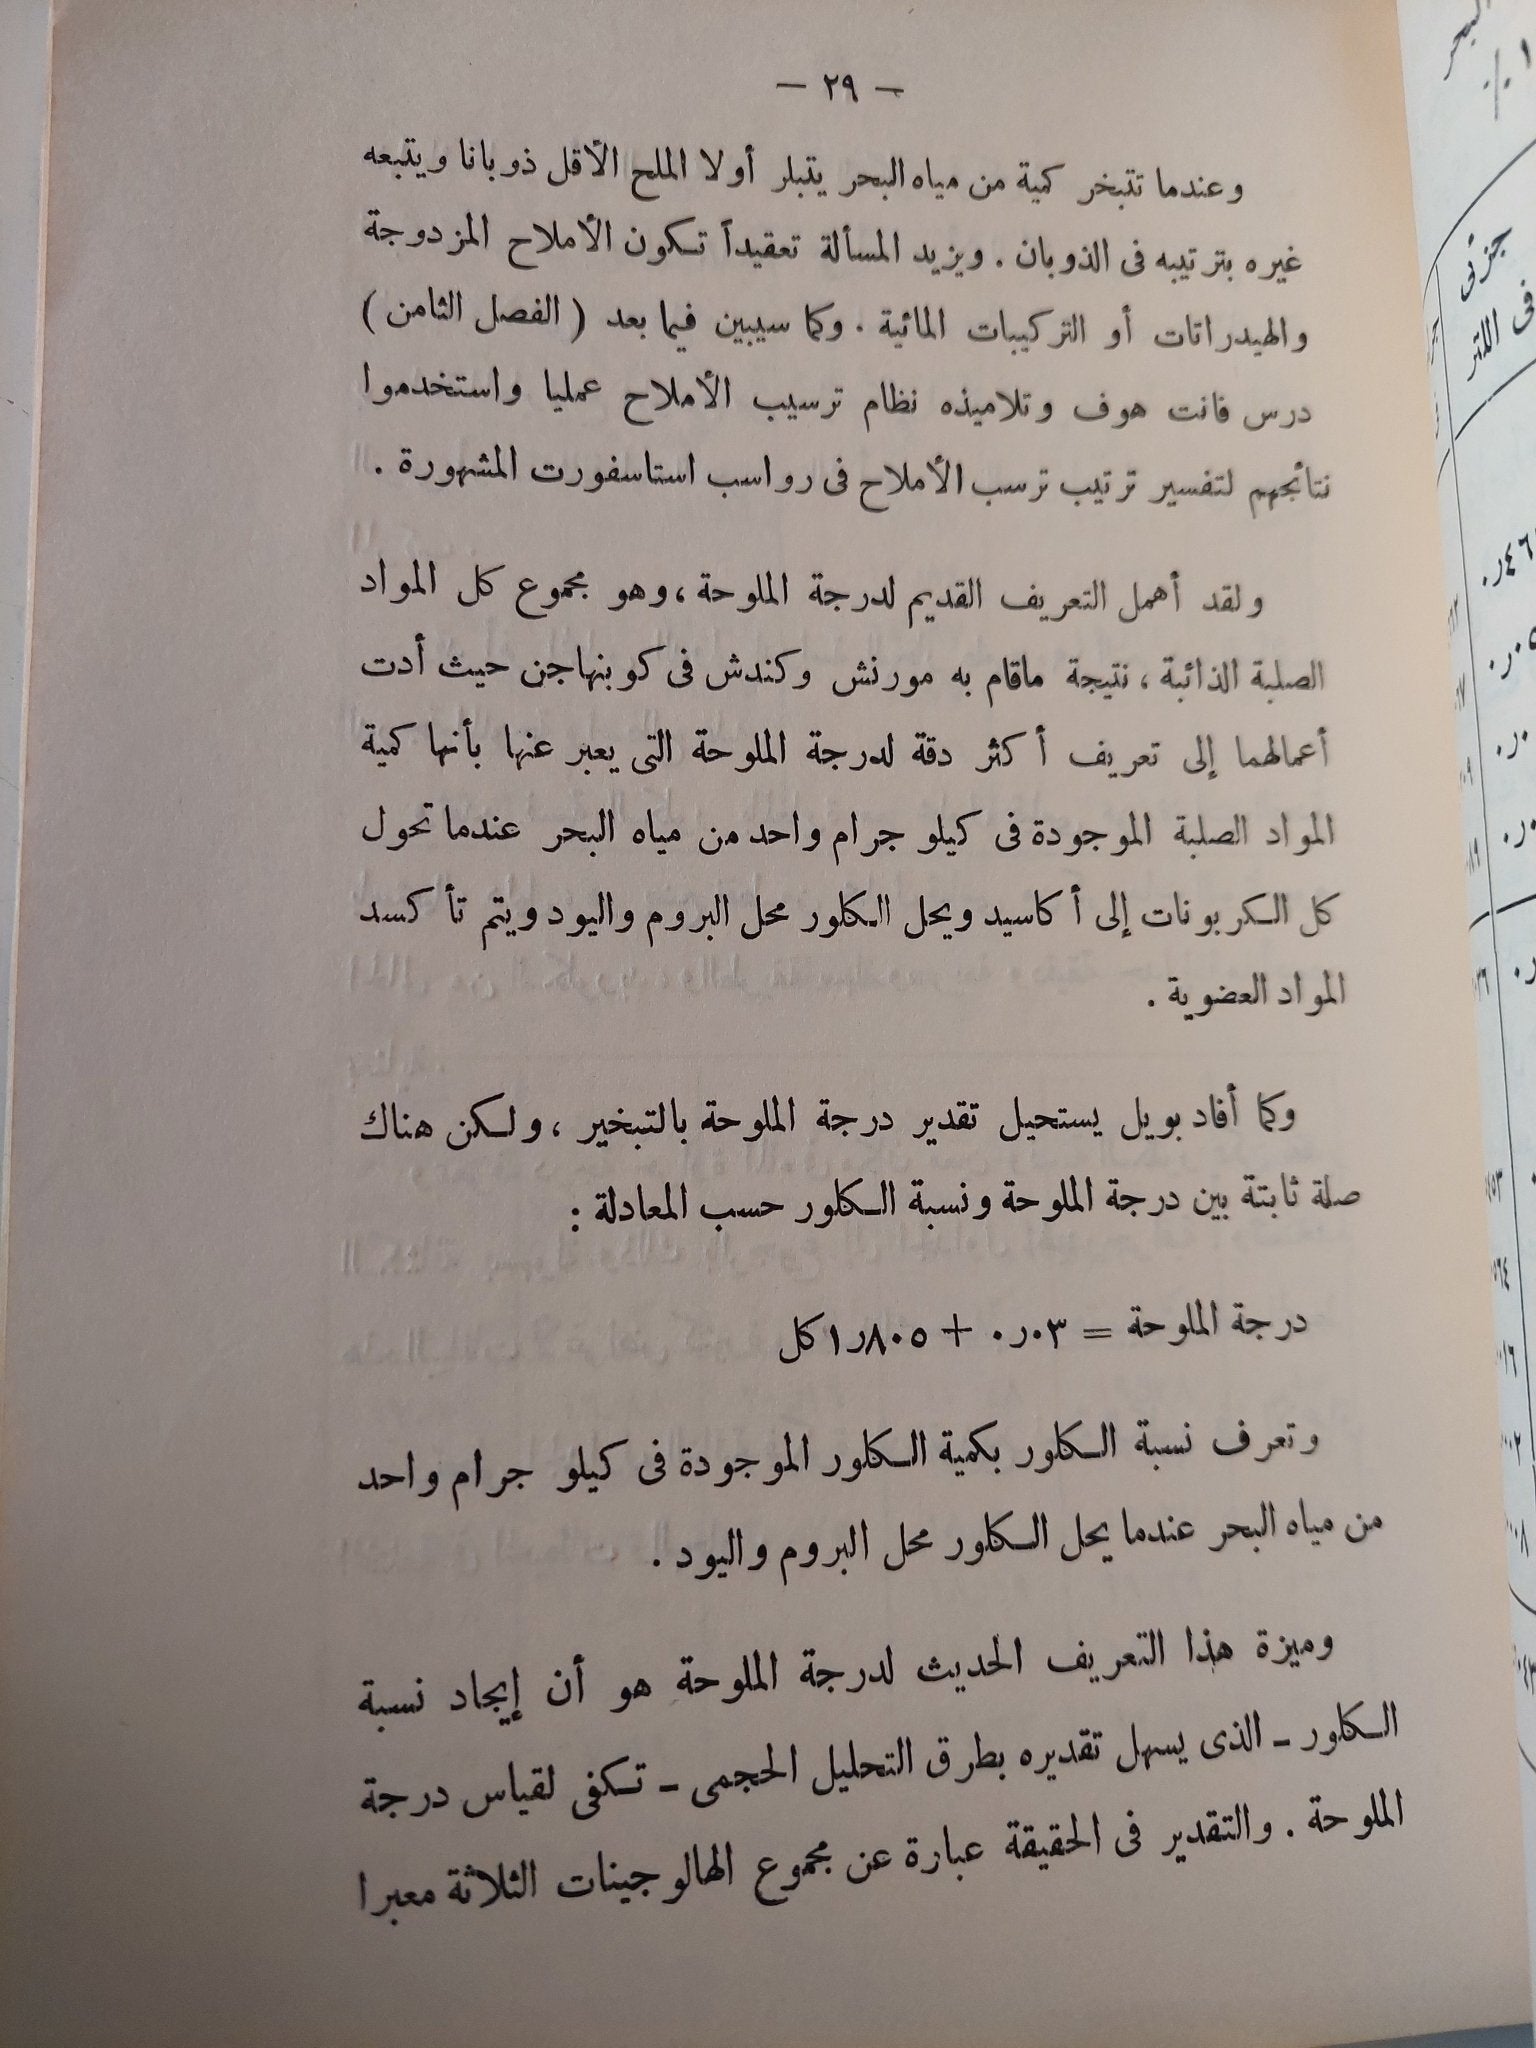 — ٢٩ —
وعندما تتبخر كمية من مياه البحر يتبلر أولا الملح الأقل ذوبانا ويتبعه
غيره بترتيبه فى الذوبان . ويزيد المسألة تعقيداً تكون الأملاح المزدوجة
والهيدراتات أو التركيبات المائية . وكما سيبين فيما بعد ( الفصل الثامن )
درس فانت هوف وتلاميذه نظام ترسيب الأملاح عمليا واستخدموا
نتائجهم لتفسير ترتيب ترسب الأملاح فى رواسب استاسفورت المشهورة .
ولقد أهمل التعريف القديم لدرجة الملوحة ، وهو مجموع كل المواد
الصلبة الذائبة ، نتيجة ماقام به مورنش وكندش فى كوبنهاجن حيث أدت
أعمالهما إلى تعريف أكثر دقة لدرجة الملوحة التى يعبر عنها بأنها كمية
المواد الصلبة الموجودة فى كيلو جرام واحد من مياه البحر عندما تحول
كل الكربونات إلى أكاسيد ويحل الكلور محل البروم واليود ويتم تأكسد
المواد العضوية .
وكما أفاد بويل يستحيل تقدير درجة الملوحة بالتبخير ، ولكن هناك
صلة ثابتة بين درجة الملوحة ونسبة الكلور حسب المعادلة :
درجة الملوحة = ٠٫٠٣ + ١٫٨٠٥ كل
وتعرف نسبة الكلور بكمية الكلور الموجودة فى كيلو جرام واحد
من مياه البحر عندما يحل الكلور محل البروم واليود .
وميزة هذا التعريف الحديث لدرجة الملوحة هو أن إيجاد نسبة
الكلور - الذى يسهل تقديره بطرق التحليل الحجمى - تكفى لقياس درجة
الملوحة . والتقدير فى الحقيقة عبارة عن مجموع الهالوجينات الثلاثة معبرا
البحر
جزئى
فى اللتر